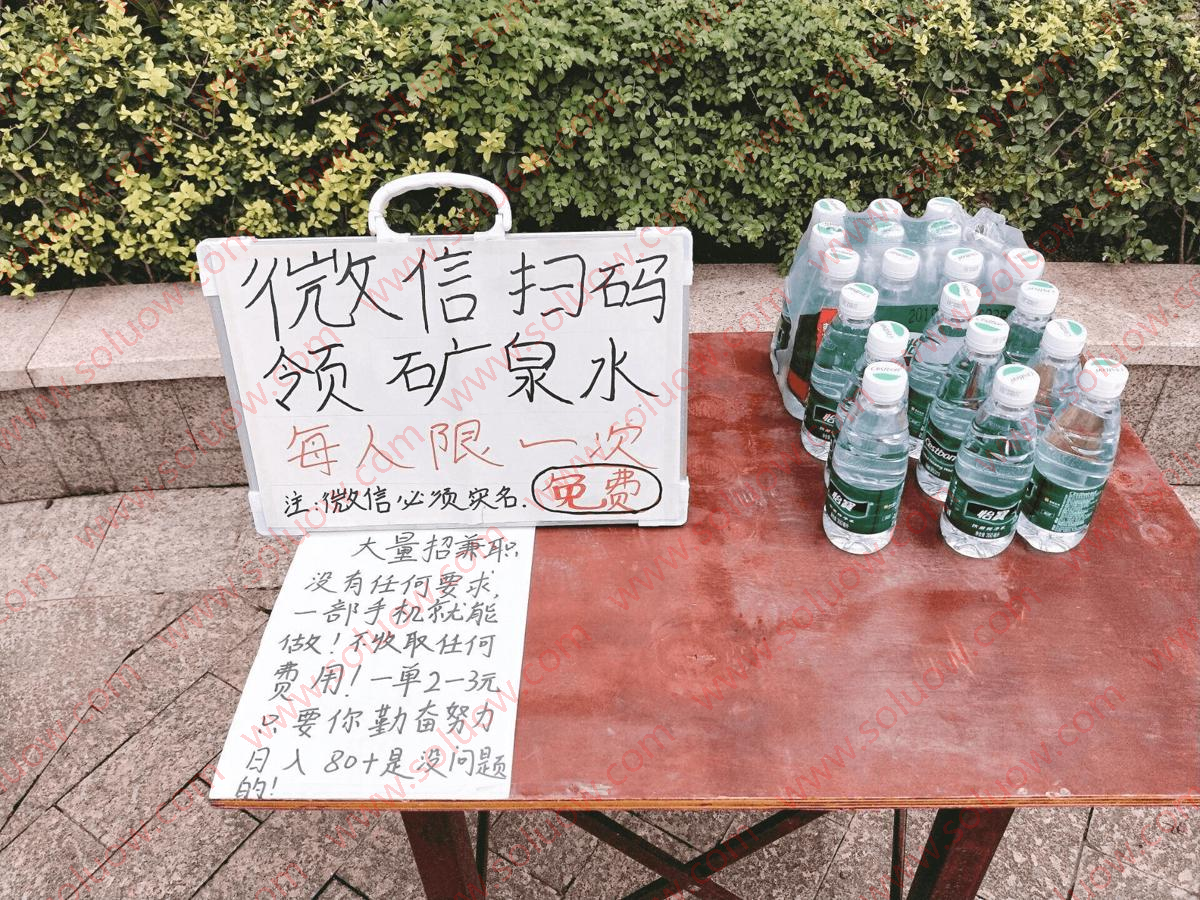 微信扫码
领矿泉水
每人限一次
注:微信必须实名.
免费
大量招兼职,
没有任何要求,
一部手机就能
做!不收取任何
费用!一单2-3元
只要你勤奋努力
日入80+是没问题
的!
怡寶
怡寶
Cestbon
Cestbon
www.soluow.com